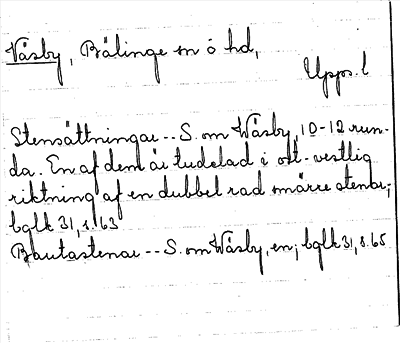 Våsby, Bälinge sn ö hd,
Upps. l
Stensättningar -- S. om Wåsby, 10-12 run-
da. En af dem är tudelad i ost-vestlig
riktning af en dubbel rad smärre stenar;
bglk 31, s. 63
Bautastenar -- S. om Wåsby, en; bglk 31, s. 65